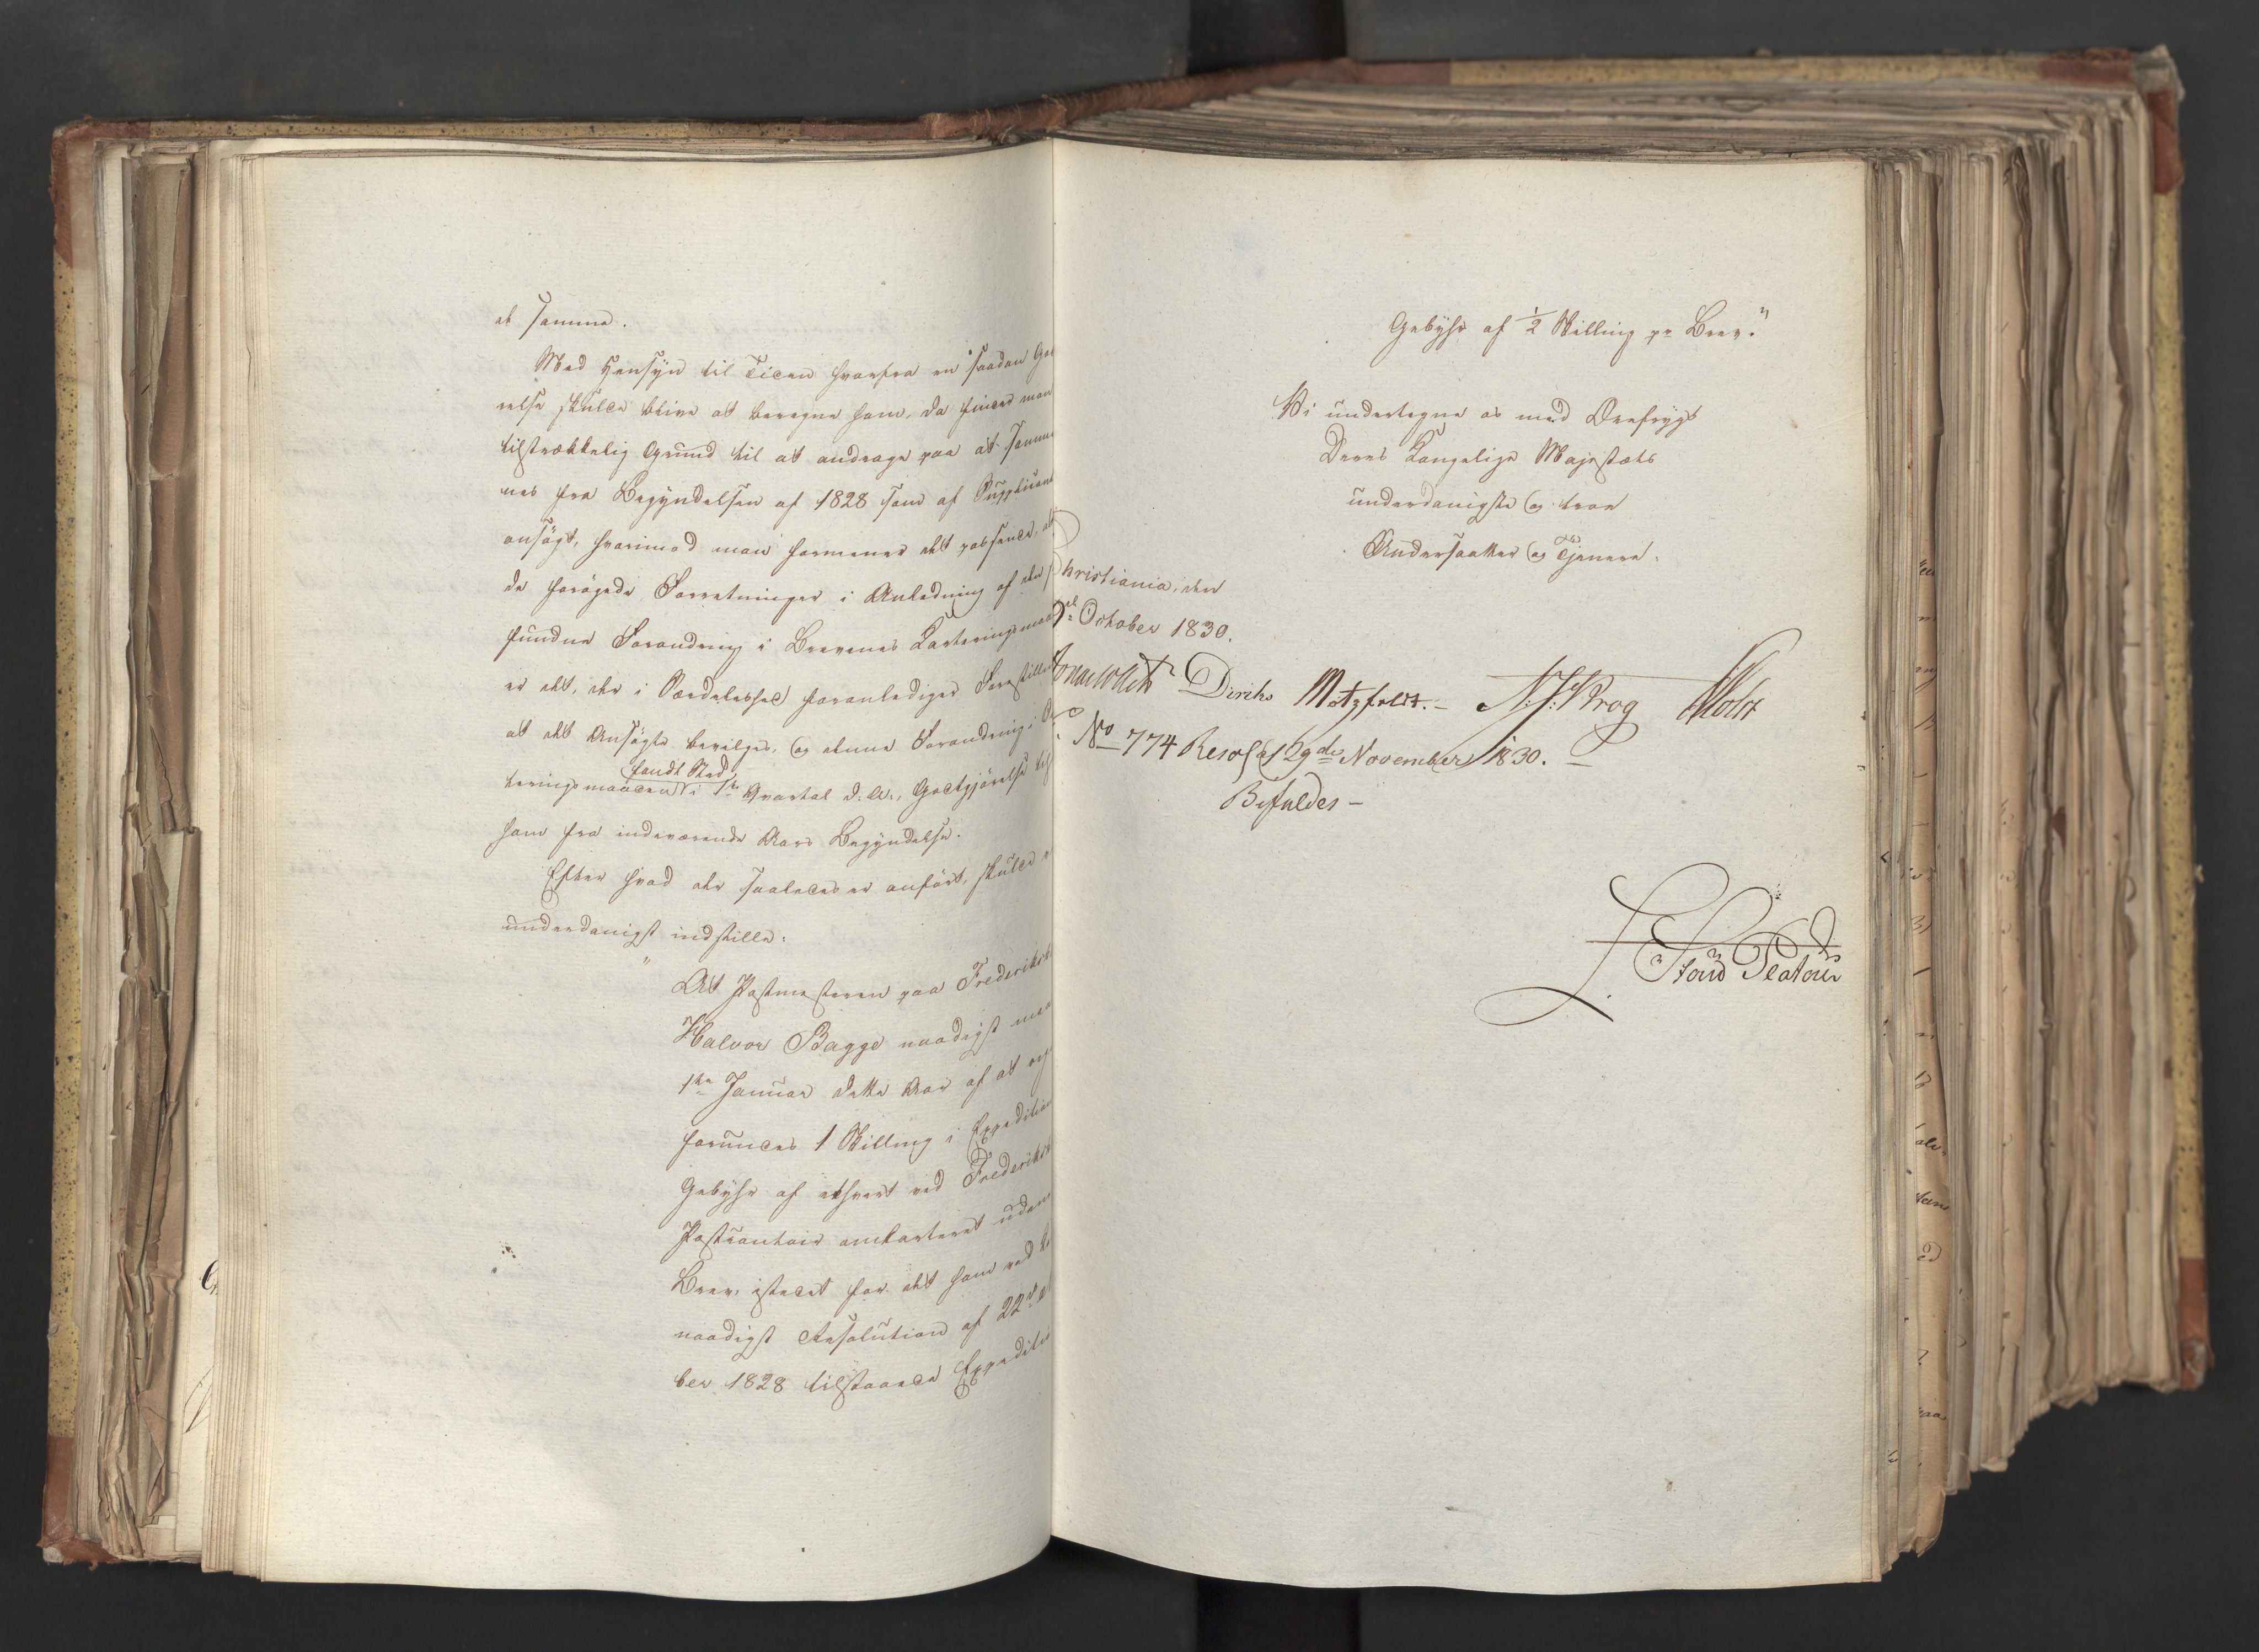 at samme.
Med Hensyn til Tiden hvorfra en saadan God
relse skulde blive at beregne ham, da findes man
tilstrækkelig Grund til at andrage paa at samme
nes fra Begyndelsen af 1828 som af Supplicant
ansøgt, hvorimod man formener det passende, at
de forøgede Forretninger i Anledning af den
fundne Forandring i Brevenes Karteringsmaa
er det, der i Særdeleshed foranlediger Forestille
at det Ansøgte bevilges, og denne Forandring i
teringsmaaden fandt Sted i 1ste Qvartal d: A:, Godtgjørelse
ham fra indeværende Aars Begyndelse.
Efter hvad der saaledes er anført, skulde
underdanigst indstille:
" At Postmesteren paa Frederiks
Halvor Bagge naadigst maa
1ste Januar dette Aar af at
forundes 1 Skilling i Expedition
Gebyhr af ethvert ved Frederiks
Postcontoir omkarteret uden
Brev, istedet for det ham ved
naadigst Resolution af 22de
ber 1828 tilstaaede Expeditio
Gebyhr af 1/2 Skilling pr Brev."
Vi undertegne os med Ærefrygt
Deres Kongelige Majestæts
underdanigste og troe
Undersaatter og Tjenere.
Christiania, den
October 1830.
Jonas Collett Diriks Motzfeldt. N. J: Krog Holst
No 774 Resol: af 29de November 1830.
Bifaldes –